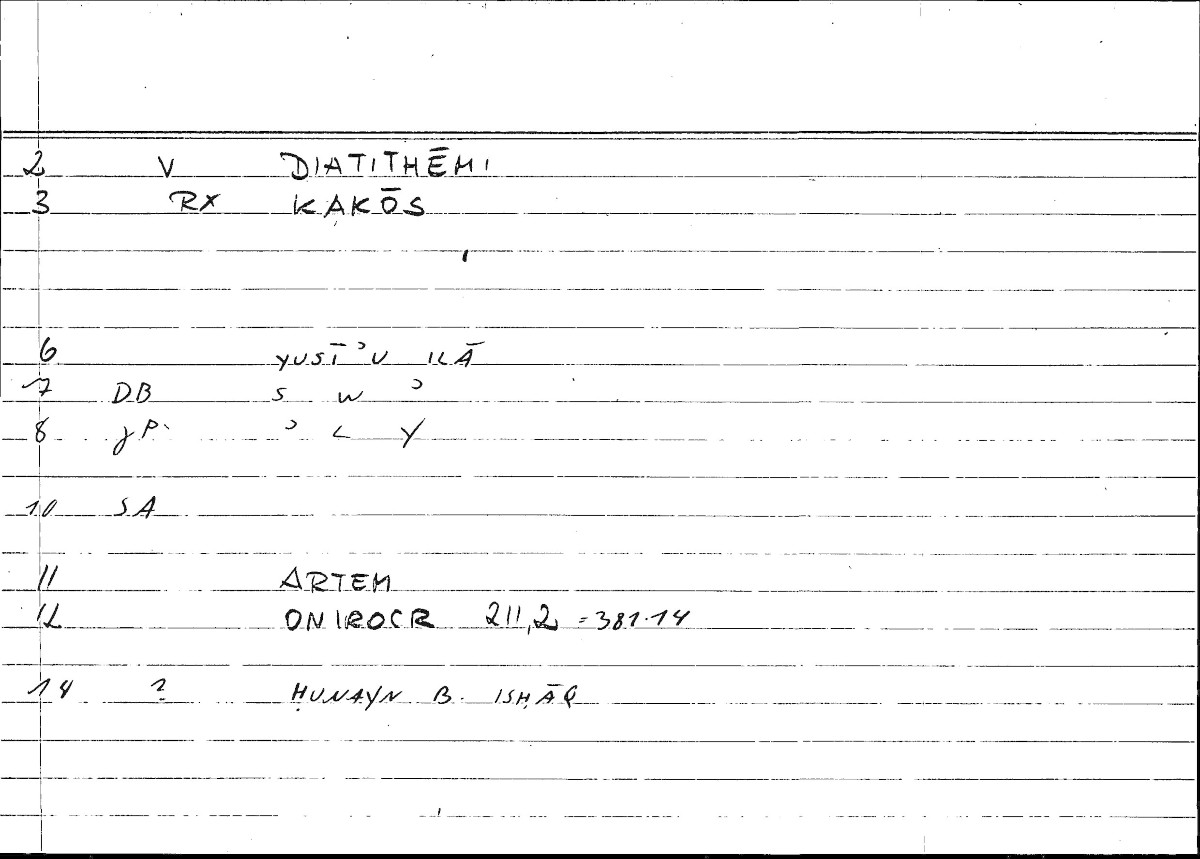 2 V DIATITHĒMI
3 RX KAKŌS
6 YUSĪʾU ILĀ
7 DB S W ʾ
8 JP ʾ L Y
10 SA
11 ARTEM
12 ONIROCR 211,2 = 381.14
14 ? ḤUNAYN B. ISḤĀQ